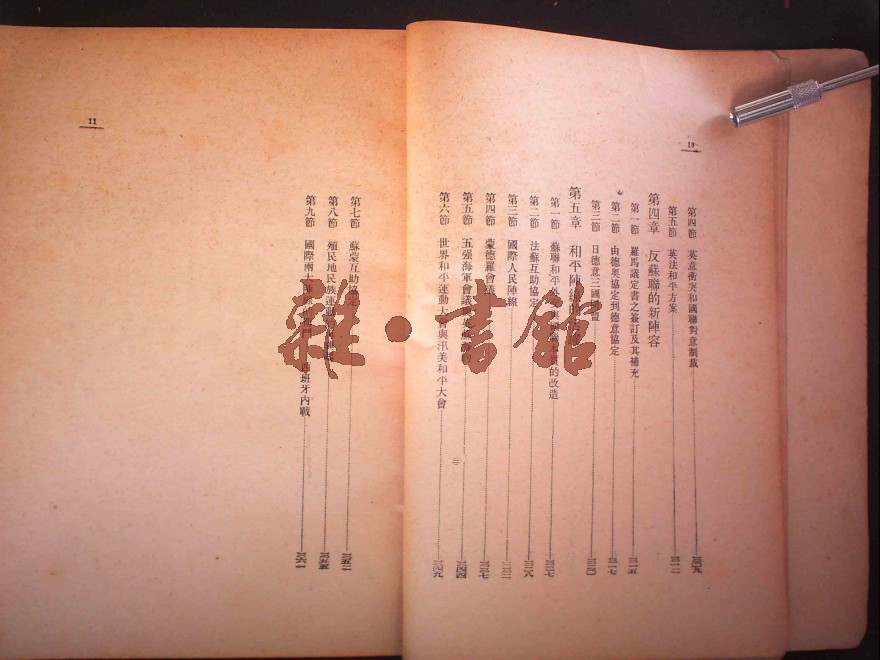 10
第四節 英意衝突和國聯對意制裁
第五節 英法和平方案
第四章 反蘇聯的新陣容
第一節 羅馬議定書之簽訂及其補充
第二節 由德奧協定到德意協定
第三節 日德意三國
第五章 和平陣線
第一節 蘇聯和平外交與 的改造
第二節 法蘇互助協定
第三節 國際人民陣線
第四節 蒙德羅會議
第五節 五强海軍會議
第六節 世界和平運動大會與汎美和平大會
11
第七節 蘇蒙互助協定
第八節 殖民地民族運動
第九節 國際兩大陣 西班牙內戰
雜·書館